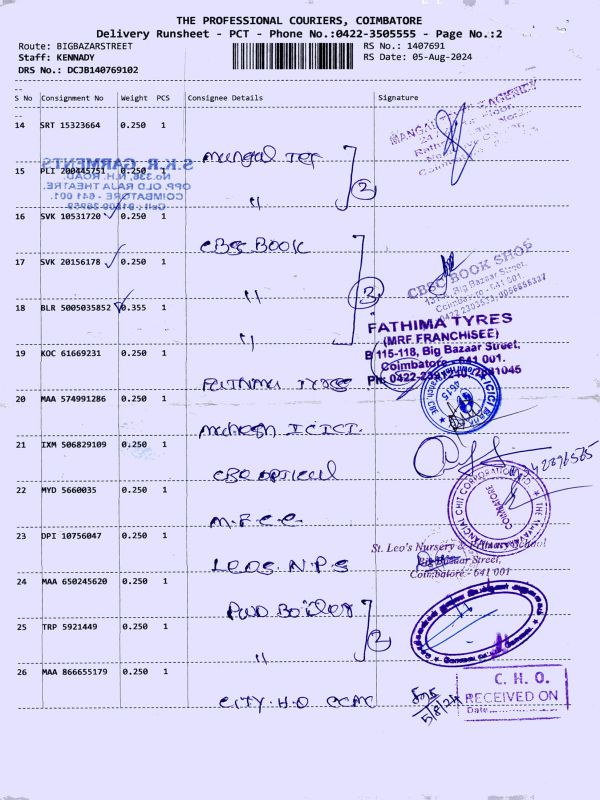 THE PROFESSIONAL COURIERS, COIMBATORE
Delivery Runsheet - PCT - Phone No.:0422-3505555 - Page No.:2
Route: BIGBAZARSTREET RS No.: 1407691
Staff: KENNADY RS Date: 05-Aug-2024
DRS No.: DCJB140769102
S No Consignment No Weight PCS Consignee Details Signature
14 SRT 15323664 0.250 1
Mangal Tex
15 PLI 200445751 0.250 1
S.K.R. GARMENTS
No.336, N.H. ROAD,
OPP. OLD RAJA THEATRE,
COIMBATORE - 641 001.
" 2
16 SVK 10531720 0.250 1
CBSC BOOK
17 SVK 20156178 0.250 1
CBSC BOOK SHOP
Big Bazaar Street,
Coimbatore
" 3
18 BLR 5005035852 0.355 1
"
FATHIMA TYRES
(MRF FRANCHISEE)
B 115-118, Big Bazaar Street,
Coimbatore - 641 001.
19 KOC 61669231 0.250 1
FATHIMA TYRES
20 MAA 574991286 0.250 1
ICICI BANK
Mahesh ICICI.
21 IXM 506829109 0.250 1
CBE OPTICAL
22 MYD 5660035 0.250 1
COIMBATORE
M.F.C.C.
23 DPI 10756047 0.250 1
St. Leo's Nursery & Primary School
Big Bazaar Street,
Coimbatore - 641 001
LEOS N.P.S
24 MAA 650245620 0.250 1
PWD Boiler
25 TRP 5921449 0.250 1
" 2
26 MAA 866655179 0.250 1
C. H. O.
RECEIVED ON
Date
CITY.H.O CCMC
5/8/24